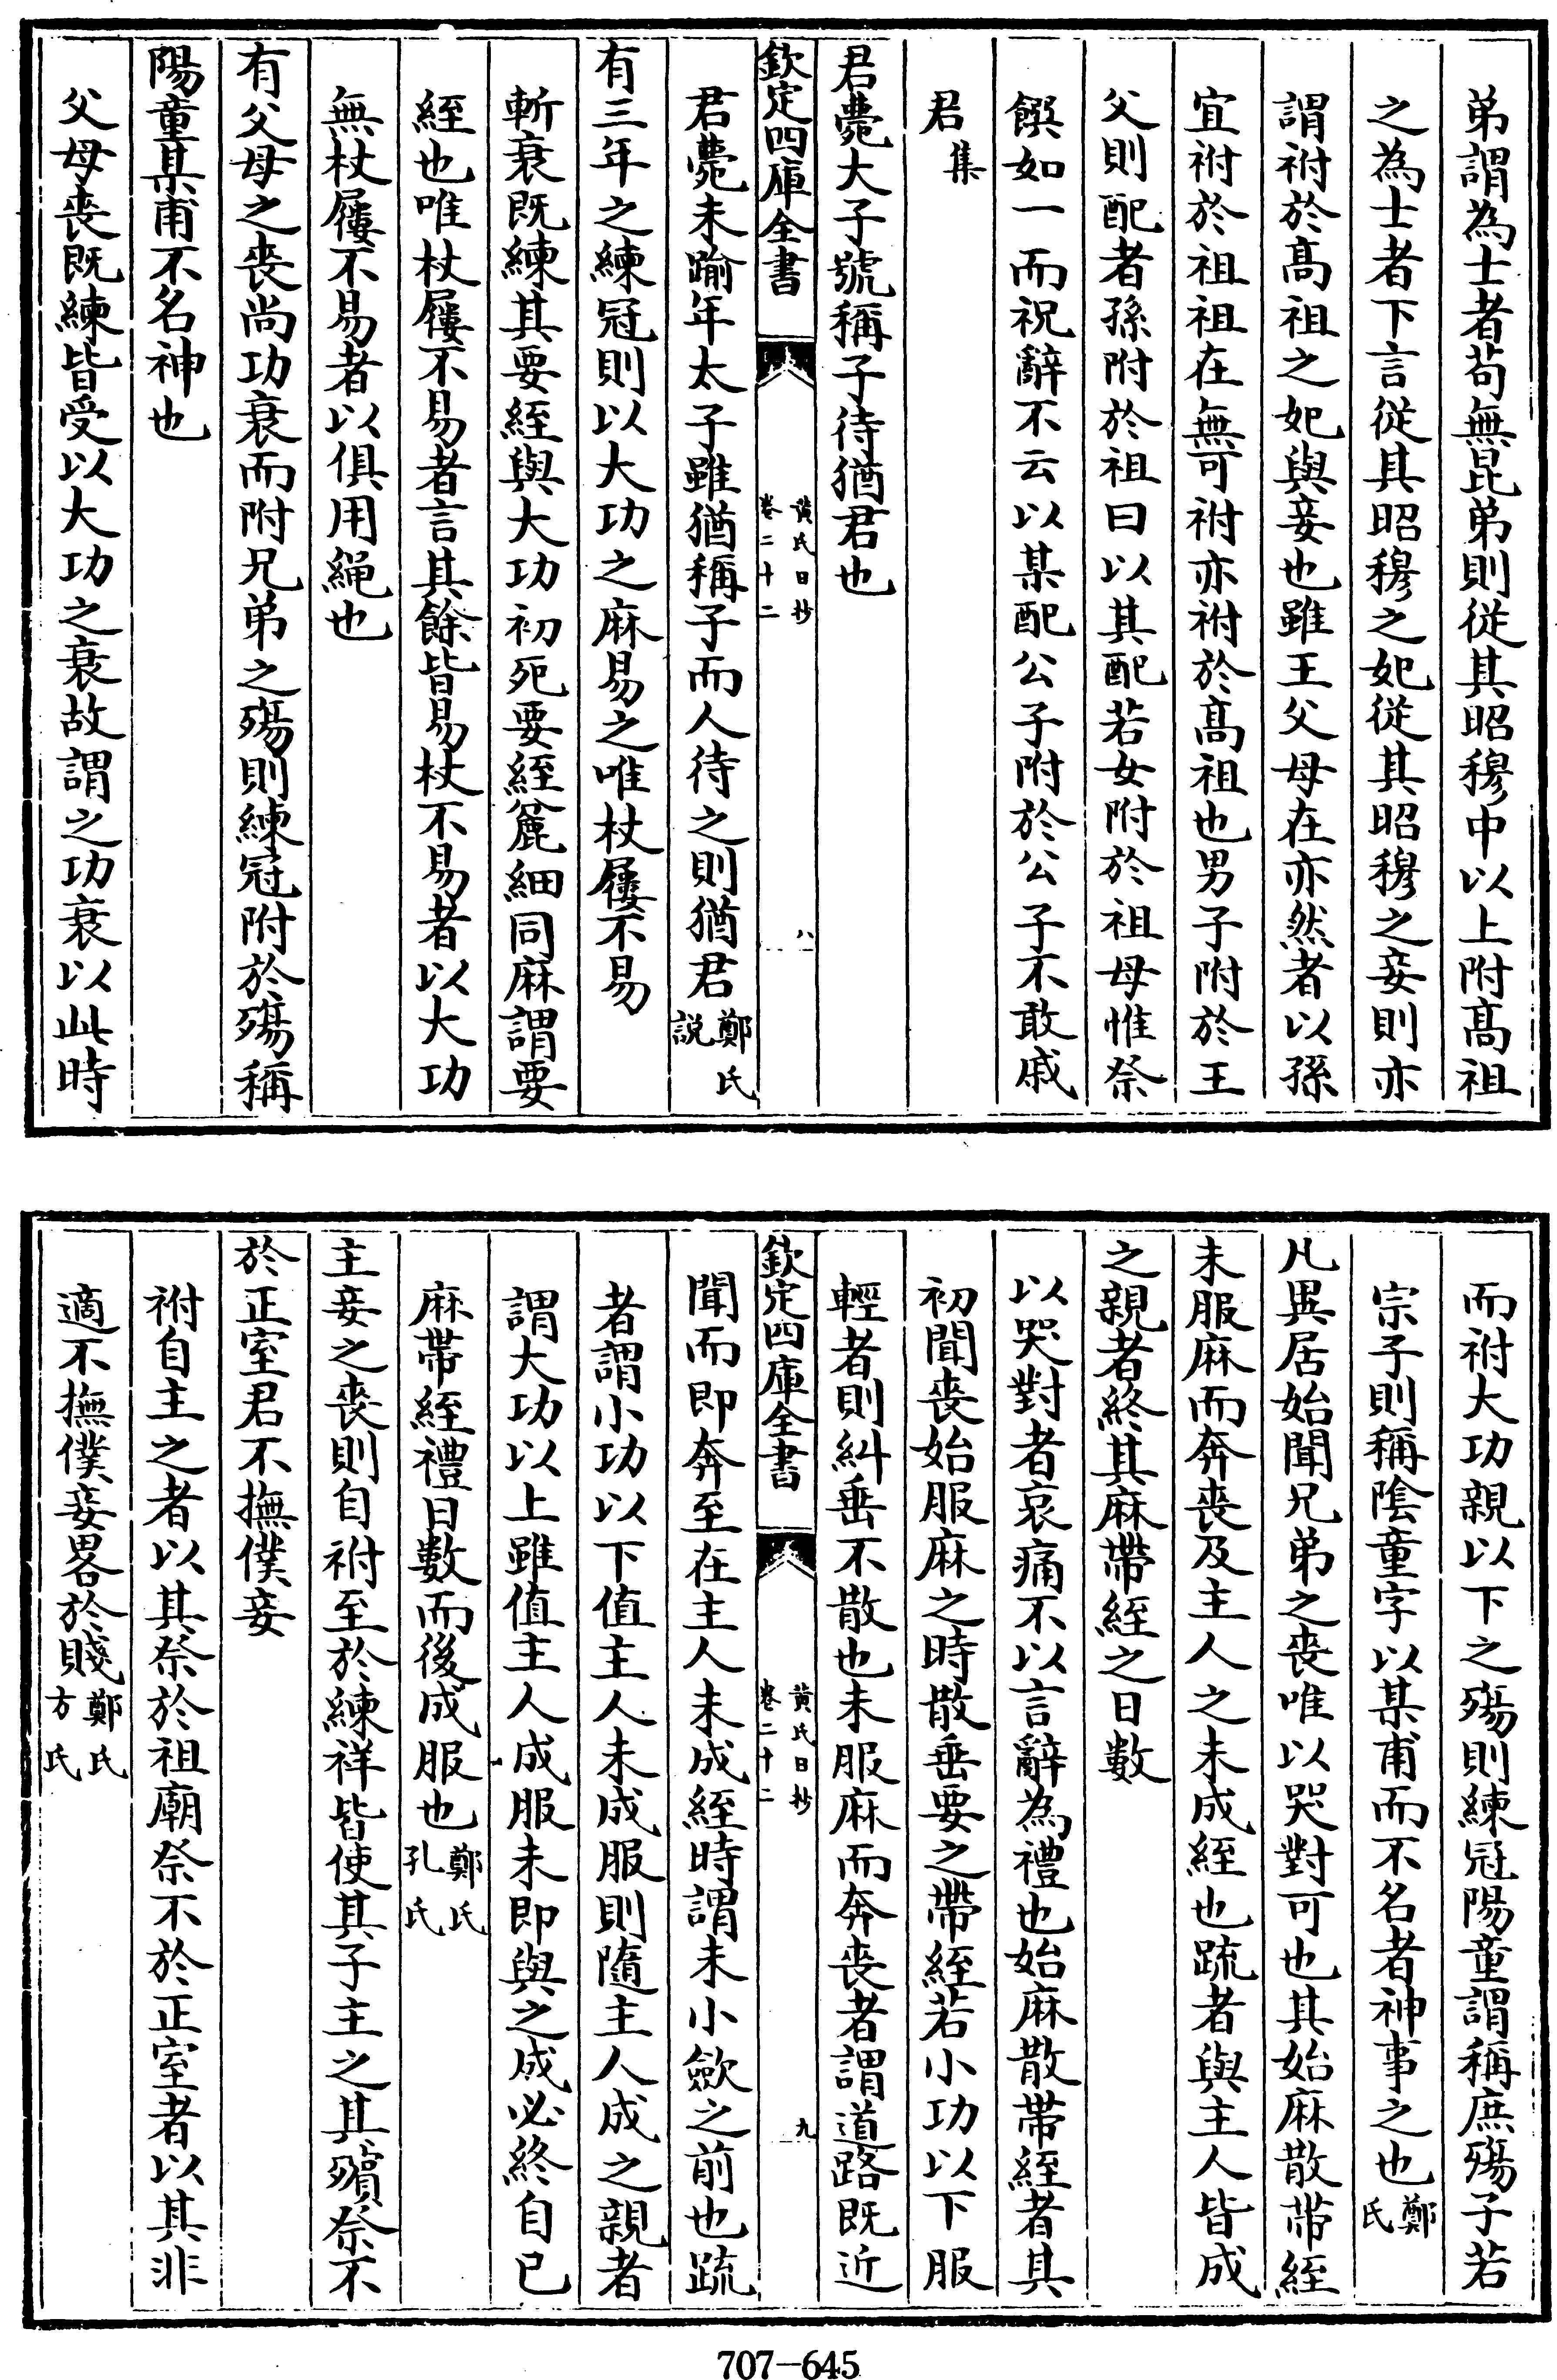 弟謂為士者茍無昆弟則從其昭穆中以上附髙祖
之為士者下言從其昭穆之妃從其昭穆之妾則亦
謂祔於髙祖之妃與妾也雖王父母在亦然者以孫
宜祔於祖祖在無可祔亦祔於髙祖也男子附於王
父則配者孫附於祖曰以其配若女附於祖母惟祭
饌如一而祝辭不云以某配公子附於公子不敢戚
君集
君薨大子號稱子待猶君也
欽定四庫全書
黃氏日抄
卷二十二
八
君薨未踰年太子雖猶稱子而人待之則猶君鄭氏說
有三年之練冠則以大功之麻易之唯杖屨不易
斬衰既練其要絰與大功初死要絰麄細同麻謂要
絰也唯杖屨不易者言其餘皆易杖不易者以大功
無杖屨不易者以俱用繩也
有父母之喪尚功衰而附兄弟之殤則練冠附於殤稱
陽童某甫不名神也
父母喪既練皆受以大功之衰故謂之功衰以此時
而祔大功親以下之殤則練冠陽童謂稱庶殤子若
宗子則稱陰童字以某甫而不名者神事之也鄭氏
凡異居始聞兄弟之喪唯以哭對可也其始麻散帶絰
未服麻而奔喪及主人之未成絰也疏者與主人皆成
之親者終其麻帶絰之日數
以哭對者哀痛不以言辭為禮也始麻散帶絰者其
初聞喪始服麻之時散垂要之帶絰若小功以下服
輕者則糾垂不散也未服麻而奔喪者謂道路既近
欽定四庫全書
黃氏日抄
卷二十二
九
聞而即奔至在主人未成絰時謂未小歛之前也疏
者謂小功以下值主人未成服則隨主人成之親者
謂大功以上雖值主人成服未即與之成必終自已
麻帶絰禮日數而後成服也鄭氏孔氏
主妾之喪則自祔至於練祥皆使其子主之其殯祭不
於正室君不撫僕妾
祔自主之者以其祭於祖廟祭不於正室者以其非
適不撫僕妾畧於賤鄭氏方氏
707-645